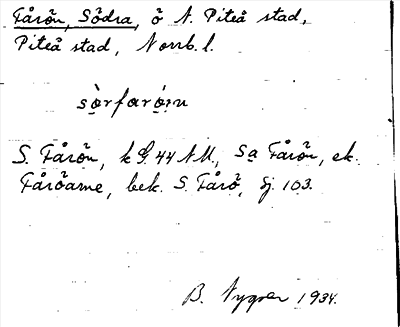 Fårön, Södra, ö N. Piteå stad,
Piteå stad, Norrb. l.
S. Fårön, k 44 NU, Sa Fårön, ek.
Fåröarne, bek. S. Fårö, sj. 103.
B. Nygren 1934.